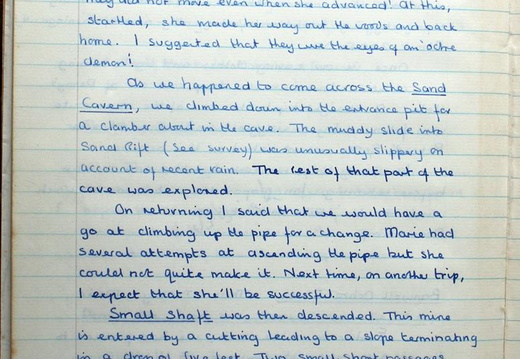 they did not move even when she advanced! At this,
startled, she made her way out the woods and back
home. I suggested that they were the eyes of an 'ochre
demon'!
As we happened to come across the Sand
Cavern, we climbed down into the entrance pit for
a clamber about in the cave. The muddy slide into
Sand Rift (See survey) was unusually slippery on
account of recent rain. The rest of that part of the
cave was explored.
On returning I said that we would have a
go at climbing up the pipe for a change. Marie had
several attempts at ascending the pipe but she
could not quite make it. Next time, on another trip,
I expect that she'll be successful.
Small Shaft was then descended. This mine
is entered by a cutting leading to a slope terminating
in a drop of five feet. Two small short passages